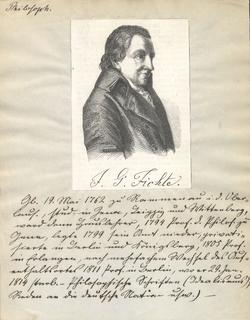 Philosoph.
J. G. Fichte.
Gb. 19. Mai 1762 zu Rammenau i. d. Ober-
laus., stud. in Jena, Leipzig und Wittenberg,
ward dann Hauslehrer, 1794 Prof. d. Philos. zu
Jena, legte 1799 sein Amt nieder, privati-
sierte in Berlin und Königsberg, 1805 Prof.
in Erlangen, nach mehrfachem Wechsel des Auf-
enthaltsortes 1811 Prof. in Berlin, wo er 29. Jan.
1814 starb. – Philosophische Schriften (Idealismus),
Reden an die deutsche Nation usw.) –